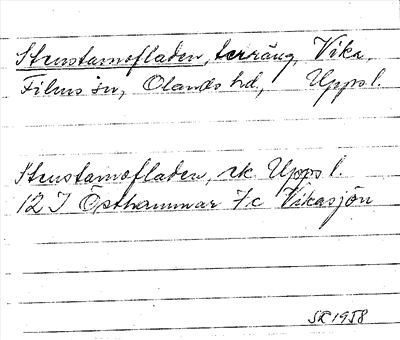 Stenstamofladen, terräng, Vika,
Films sn, Olands hd, Uppsl.
Stenstamofladen, rk Uppsl.
12 I Östhammar 7c Vikasjön
SR 1958